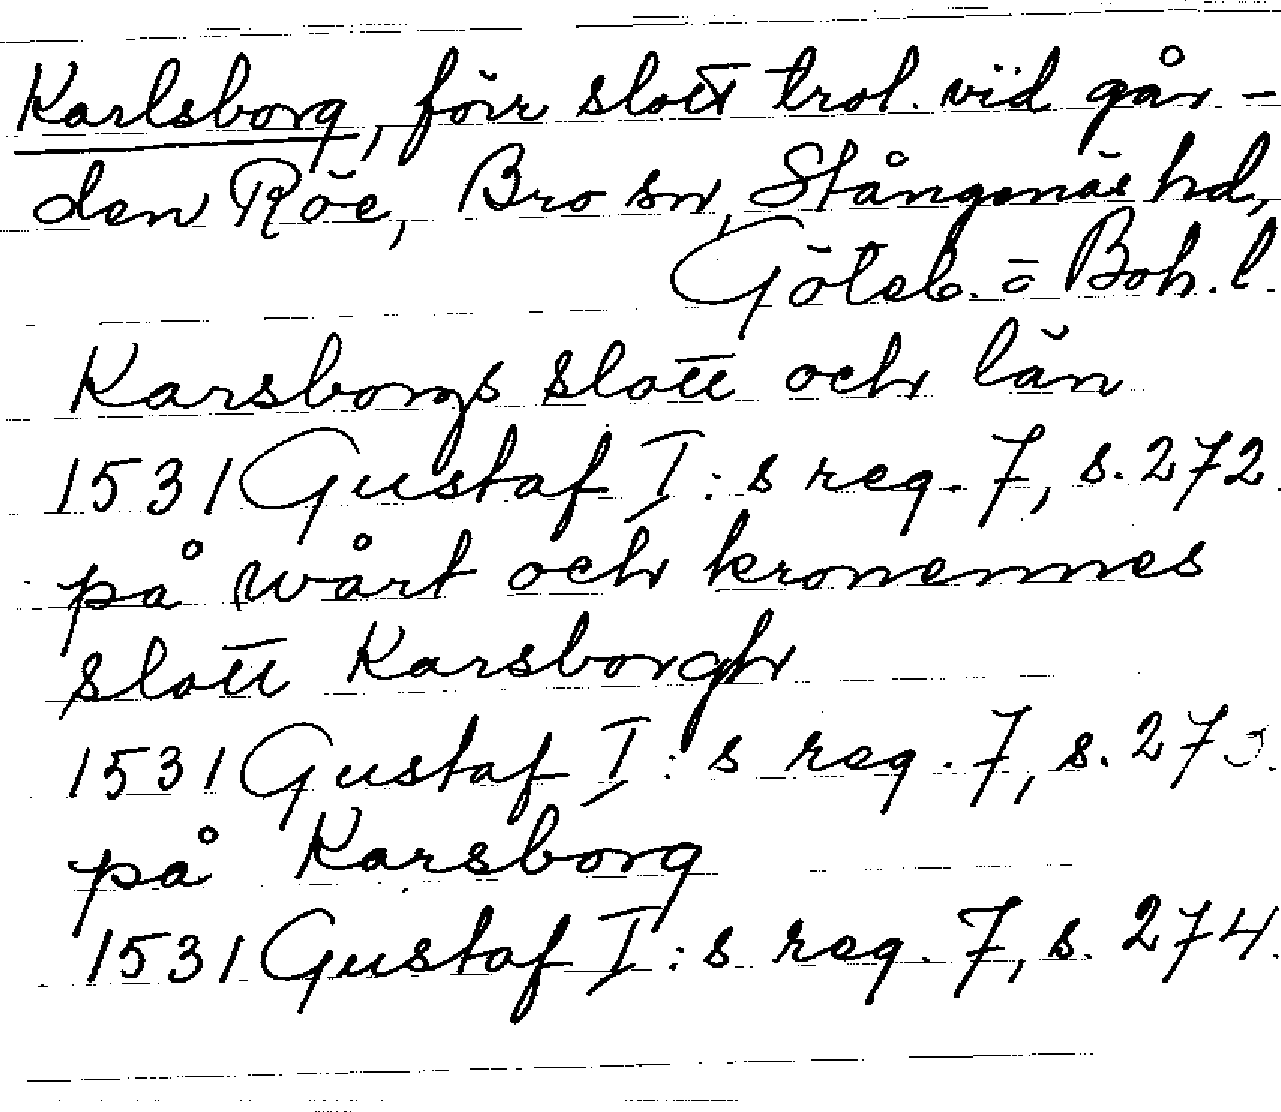 Karlsborg, förr slott trol. vid går-
den Röe, Bro sn, Stångenäs hd,
Göteb. o Boh. l.
Karsborgs slott och län
1531 Gustaf I:s reg. 7, s. 272.
på wårt och kronennes
slott Karsborgh
1531 Gustaf I:s reg. 7, s. 273.
på Karsborg
1531 Gustaf I:s reg. 7, s. 274.